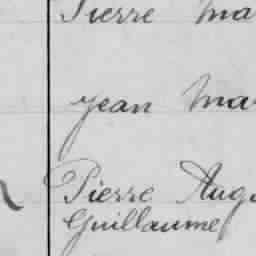 Pierre Ma
Jean Mar
Pierre Aug
Guillaume